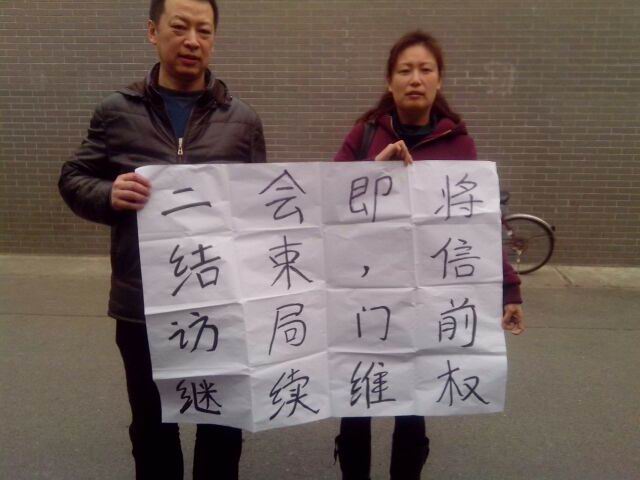 二会即将
结束，信
访局门前
继续维权